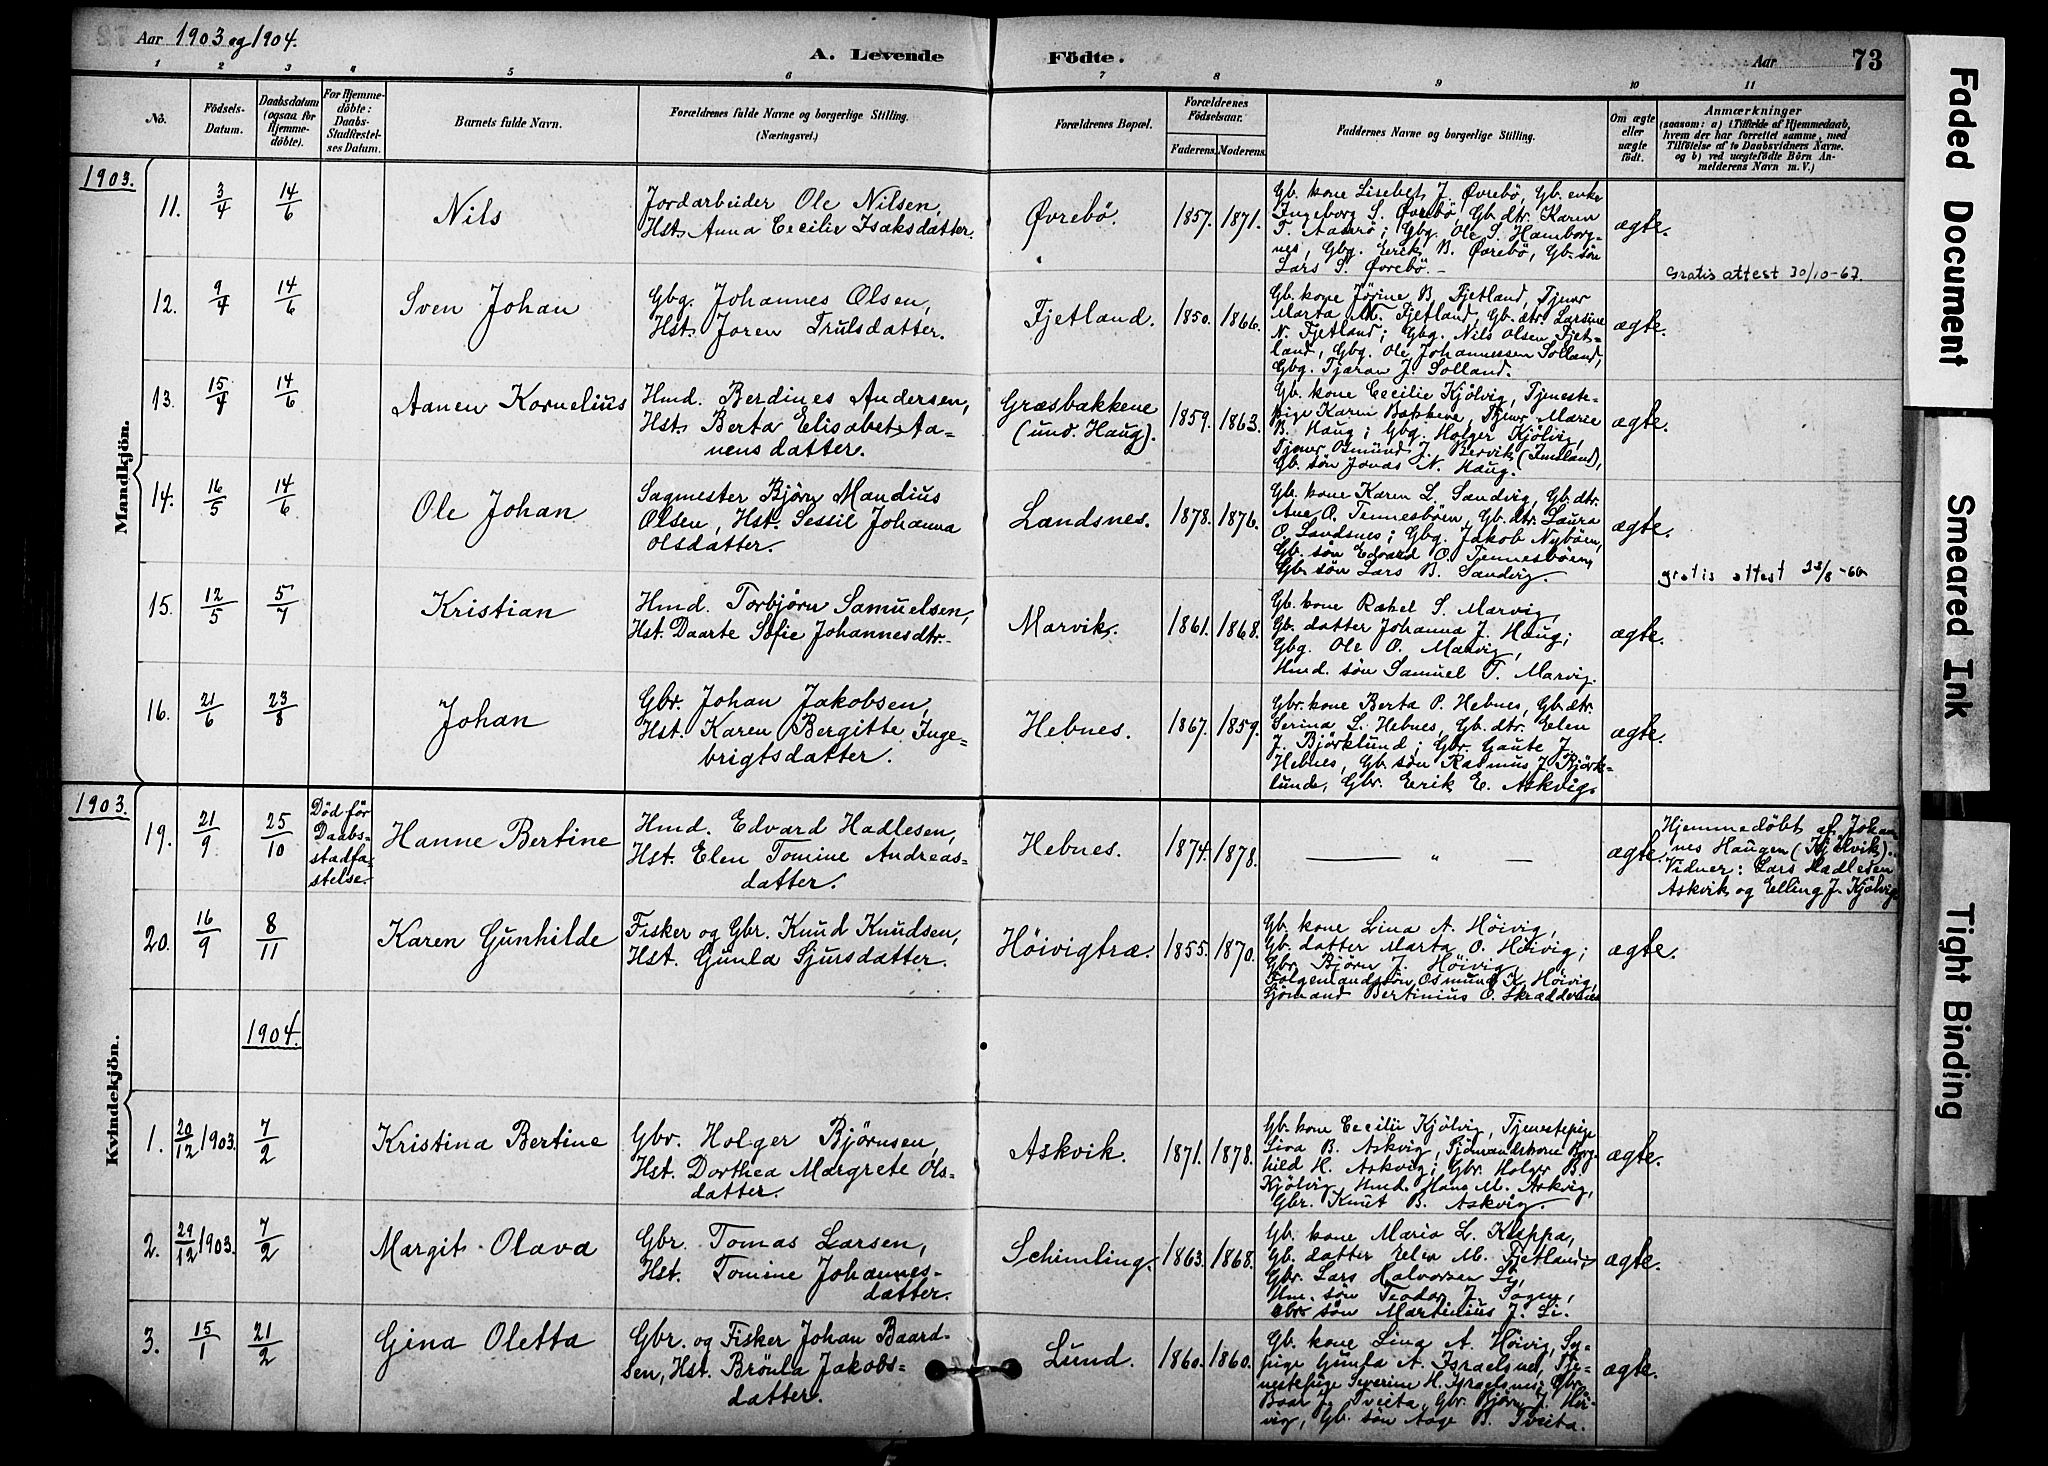 Aar 1903 og 1904.
A. Levende Födte.
Aar 73
1 2 3 4 5 6 7 8 9 10 11
No.
Födsels-
Datum.
Daabsdatum
(ogsaa for
Hjemme-
döbte).
For Hjemme-
döbte:
Daabs-
Stadfæstel-
ses Datum.
Barnets fulde Navn.
Forældrenes fulde Navne og borgerlige Stilling.
(Næringsvei.)
Forældrenes Bopæl.
Forældrenes
Födselsaar.
Faderens. Moderens.
Faddernes Navne og borgerlige Stilling.
Om ægte
eller
uægte
födt.
Anmærkninger
(saasom: a) i Tilfælde af Hjemmedaab,
hvem der har forrettet samme, med
Tilföielse af to Daabsvidners Navne.
og b) ved uægtefödte Börn An-
melderens Navn m. V.)
Mandkjön.
1903.
11.
3/4
14/6
Nils
Jordarbeider Ole Nilsen,
Hst. Anna Cecilie Isaksdatter.
Øvrebö.
1857. 1871.
Gb. kone Lisebet J. Øvrebö, Gb. enke
Ingeborg S. Øvrebö, Gb. dtr. Karen
T. Aasebö; Gbg. Ole S. Hamborg-
nes, Gbg. Eerik B. Øvrebö, Gb. søn
Lars S. Øvrebö.-
ægte.
Gratis attest 30/10-63.
12.
9/4
14/6
Sven Johan
Gbg. Johannes Olsen,
Hst. Joren Trulsdatter.
Fjetland.
1850. 1866.
Gb. kone Jörine B. Fjetland, Tjener
Marta M. Fjetland, Gb. dtr. Larsine
N. Fjetland; Gbg. Nils Olsen Fjet-
land, Gbg. Ole Johannessen Solland,
Gbg. Tjæran J. Solland.
ægte.
13.
15/4
14/6
Aanen Kornelius
Hmd. Berdines Andersen,
Hst. Berta Elisabet Aa-
nensdatter.
Græsbakkene
(und. Haug).
1859. 1863.
Gb. kone Cecilie Kjölvig, Tjeneste-
pige Karen Bakkene, Tjener Marie
B. Haug; Gbg. Holger Kjölvig,
Tjener Osmund J. Bervik (Imsland),
Gb. søn Jonas N. Haug.
ægte.
14.
16/5
14/6
Ole Johan
Sagmester Bjørn Mandius
Olsen, Hst. Sessil Johanna
Olsdatter.
Landsnes.
1878. 1876.
Gb. kone Karen L. Sandvig, Gb. dtr.
Ane O. Tennesböen, Gb. dtr. Laura
O. Landsnes; Gbg. Jakob Nyböen,
Gb. søn Edvard O. Tennesböen,
Gb. søn Lars B. Sandvig.
ægte.
gratis attest 23/8-60
15.
12/5
5/7
Kristian
Hmd. Torbjørn Samuelsen,
Hst. Daarte Sofie Johannesdtr.
Marvik.
1861. 1868.
Gb. kone Rakel S. Marvig,
Gb. datter Johanna J. Haug;
Gbg. Ole O. Marvig,
Hmd. søn Samuel T. Marvig.
ægte.
16.
21/6
23/8
Johan
Gbr. Johan Jakobsen,
Hst. Karen Bergitte Inge-
brigtsdatter.
Hebnes.
1867. 1859.
Gbr. kone Berta P. Hebnes, Gb. dtr.
Serina L. Hebnes, Gb. dtr. Elen
J. Björklund; Gbr. Gaute J.
Hebnes, Gb. søn Rasmus J. Björk-
lunde, Gbr. Eerik E. Askvig.
ægte.
Kvindekjön.
1903.
19.
21/9
25/10
Död før
Daabs-
stadfæ-
stelse.
Hanne Bertine
Hmd. Edvard Hadlesen,
Hst. Elen Tomine Andreas-
datter.
Hebnes.
1874. 1878.
— „ —
ægte.
Hjemmedöbt af Johan-
nes Haugen (Kjölvik).
Vidner: Lars Hadlesen
Askvik og Elling J. Kjölvig
20.
16/9
8/11
Karen Gunhilde
Fisker og Gbr. Knud Knudsen,
Hst. Gunla Sjursdatter.
Höivigtræ.
1855. 1870.
Gb. kone Lina A. Höivig,
Gb. datter Marta O. Höivig;
Gbr. Bjørn J. Höivig,
Fölgemandssøn Osmund K. Höivig,
Sjømand Bertinius O. Skræddernes
ægte.
1904.
1.
20/12 1903.
7/2
Kristina Bertine
Gbr. Holger Bjørnsen,
Hst. Dorthea Margrete Ols-
datter.
Askvik.
1871. 1878.
Gb. kone Cecilie Kjölvig, Tjenestepige
Siva B. Askvig, Sjömandskone Borg-
hild H. Askvig; Gbr. Holger B.
Kjölvig, Hmd. Hans M. Askvig,
Gbr. Knut B. Askvig.
ægte.
2.
29/12 1903.
7/2
Margit Olava
Gbr. Tomas Larsen,
Hst. Tomine Johannes-
datter.
Schimling.
1863. 1868.
Gb. kone Maria L. Kleppa,
Gb. datter Elen M. Fjetland;
Gbr. Lars Halvorsen Li,
Hm. søn Teodor J. Sagen,
Gbr. søn Martinius J. Li.
ægte.
3.
15/1
21/2
Gina Oletta
Gbr. og Fisker Johan Baard-
sen, Hst. Brönla Jakobs-
datter.
Lund.
1860. 1860.
Gb. kone Lina A. Höivig, Sy-
pige Gunla A. Israelsnes, Tje-
nestepige Severine H. Israelsnes; Gbr.
Baar J. Tveita, Gbr. Bjørn J. Höi-
vig, Gb. søn Aage B. Tveita.
ægte.
Faded Document
Smeared Ink
Tight Binding